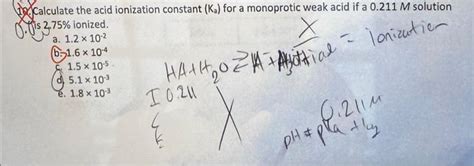 10. Calculate the acid ionization constant (Ka) for a monoprotic weak acid if a 0.211 M solution
is 2.75% ionized.
a. 1.2 × 10-2
b. 1.6 × 10-4
c. 1.5 × 10-5
d. 5.1 × 10-3
e. 1.8 × 10-3
X
= ionization
HA + H2O ⇌ A
I 0.211
C
E
X
0.211 M
pH = pKa + log